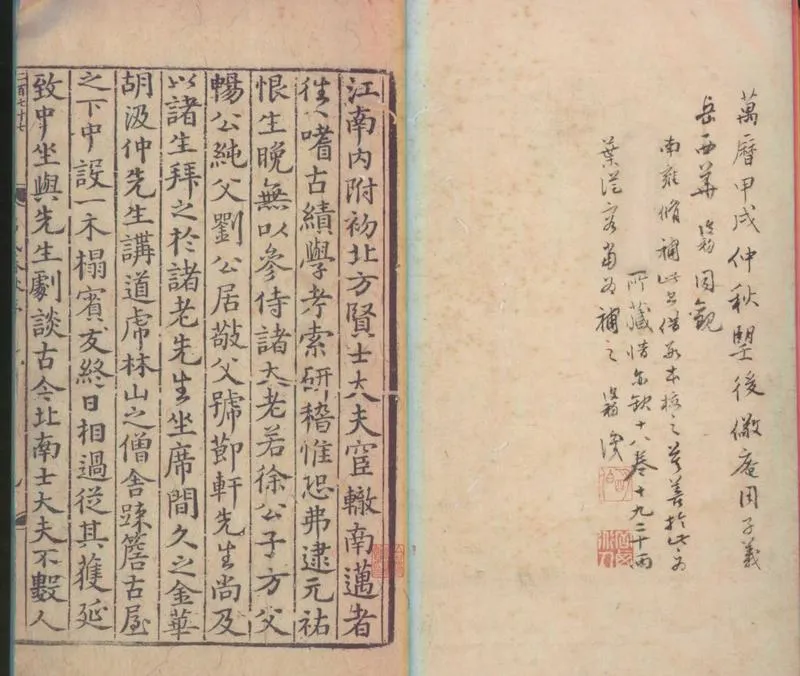 萬曆甲戌仲秋朢後儆庵周子義
岳西華同觀
南雍脩補此書借本校之善於此
所藏惜亦缺十八卷十九二十兩
葉從容當為補之
江南内附初北方賢士大夫宦轍南邁者
徃〻嗜古績學考索研稽惟恐弗逮元祐
恨生晚無以參侍諸大老若徐公子方父
暢公純父劉公居敬父號節軒先生尚及
以諸生拜之於諸老先生坐席間久之金華
胡汲仲先生講道虎林山之僧舍踈簷古屋
之下中設一木榻賓友終日相過從其獲延
致中坐與先生劇談古今北南士大夫不數人
二百七十七